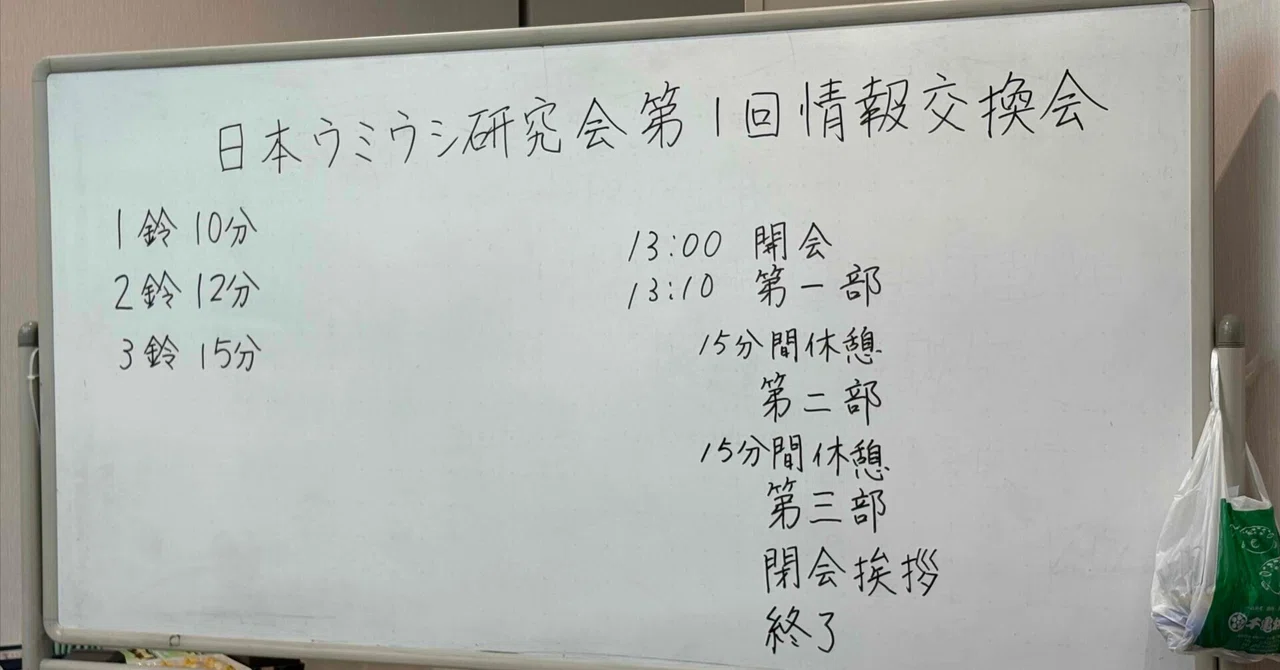 日本ウミウシ研究会第1回情報交換会
1鈴 10分
2鈴 12分
3鈴 15分
13:00 開会
13:10 第一部
15分間休憩
第二部
15分間休憩
第三部
閉会挨拶
終了